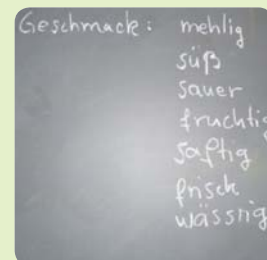 Geschmack: mehlig
süß
sauer
fruchtig
saftig
frisch
wässrig